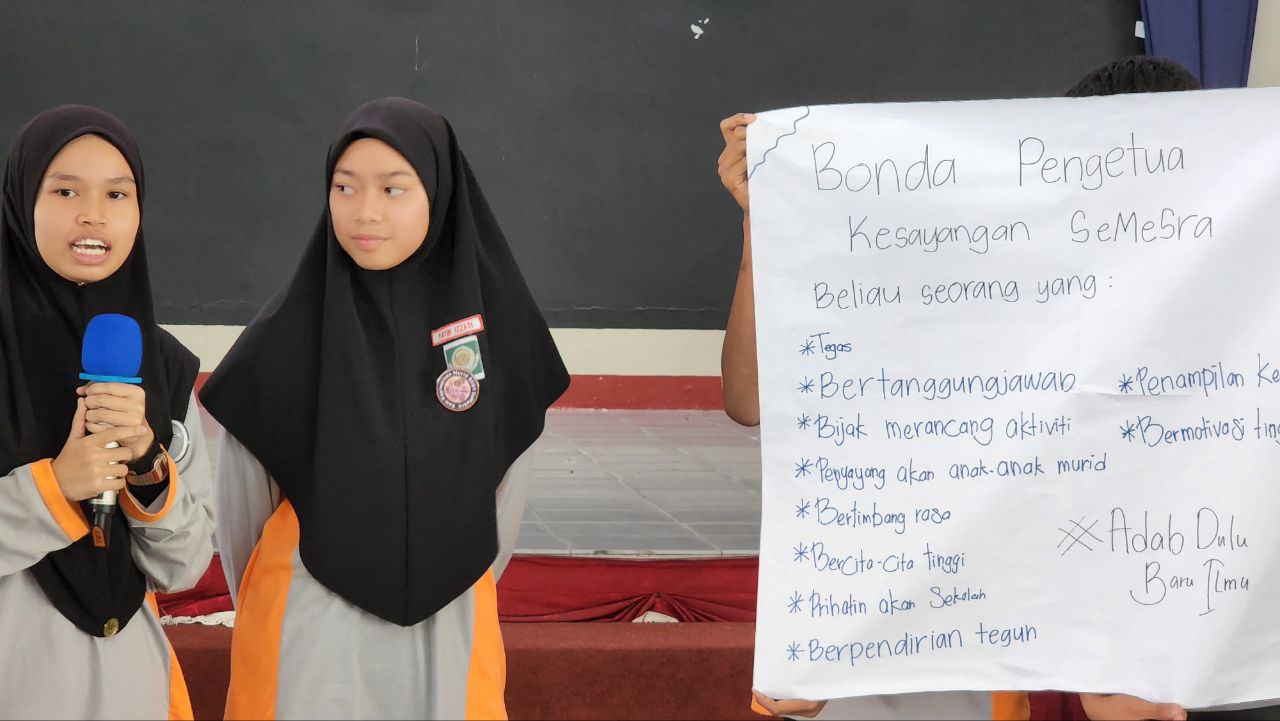 Bonda Pengetua
Kesayangan SeMeSra
Beliau seorang yang :
*Tegas
*Bertanggungjawab
*Bijak merancang aktiviti
*Penyayang akan anak-anak murid
*Bertimbang rasa
*Bercita-cita tinggi
*Prihatin akan Sekolah
*Berpendirian teguh
*Penampilan Ke
*Bermotivasi ting
※ Adab Dulu
Baru Ilmu